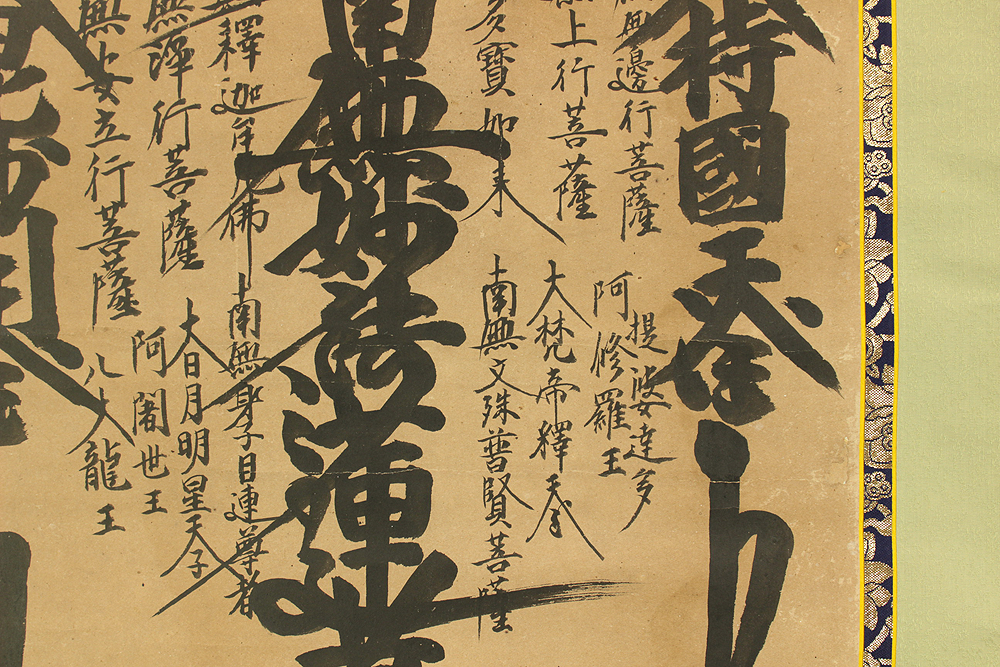 持國天
無邊行菩薩
上行菩薩
提婆達多
阿修羅王
大梵帝釋天
多寶如来
南無文殊普賢菩薩
南無妙法蓮華
釋迦牟尼佛
南無身子目連尊者
無浄行菩薩
大日月明星天子
無安立行菩薩
阿闍世王
八大龍王